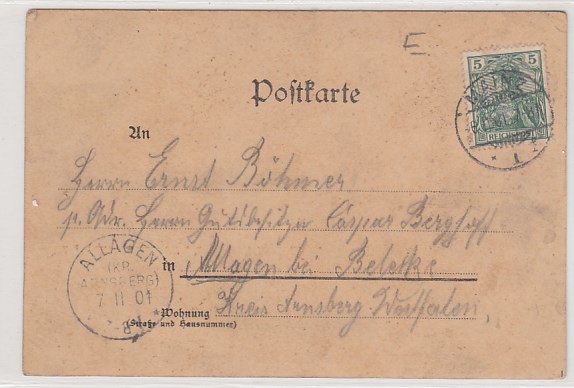 E
5 5
Postkarte
REICHSPOST
An
Herrn Ernst Böhmer
p. Adr. Herrn Gutsbesitzer Caspar Berghoff
in Allagen bei Belecke
Kreis Arnsberg Westfalen
Wohnung
(Straße und Hausnummer)
ALLAGEN
(KR.
ARNSBERG)
7 11 01